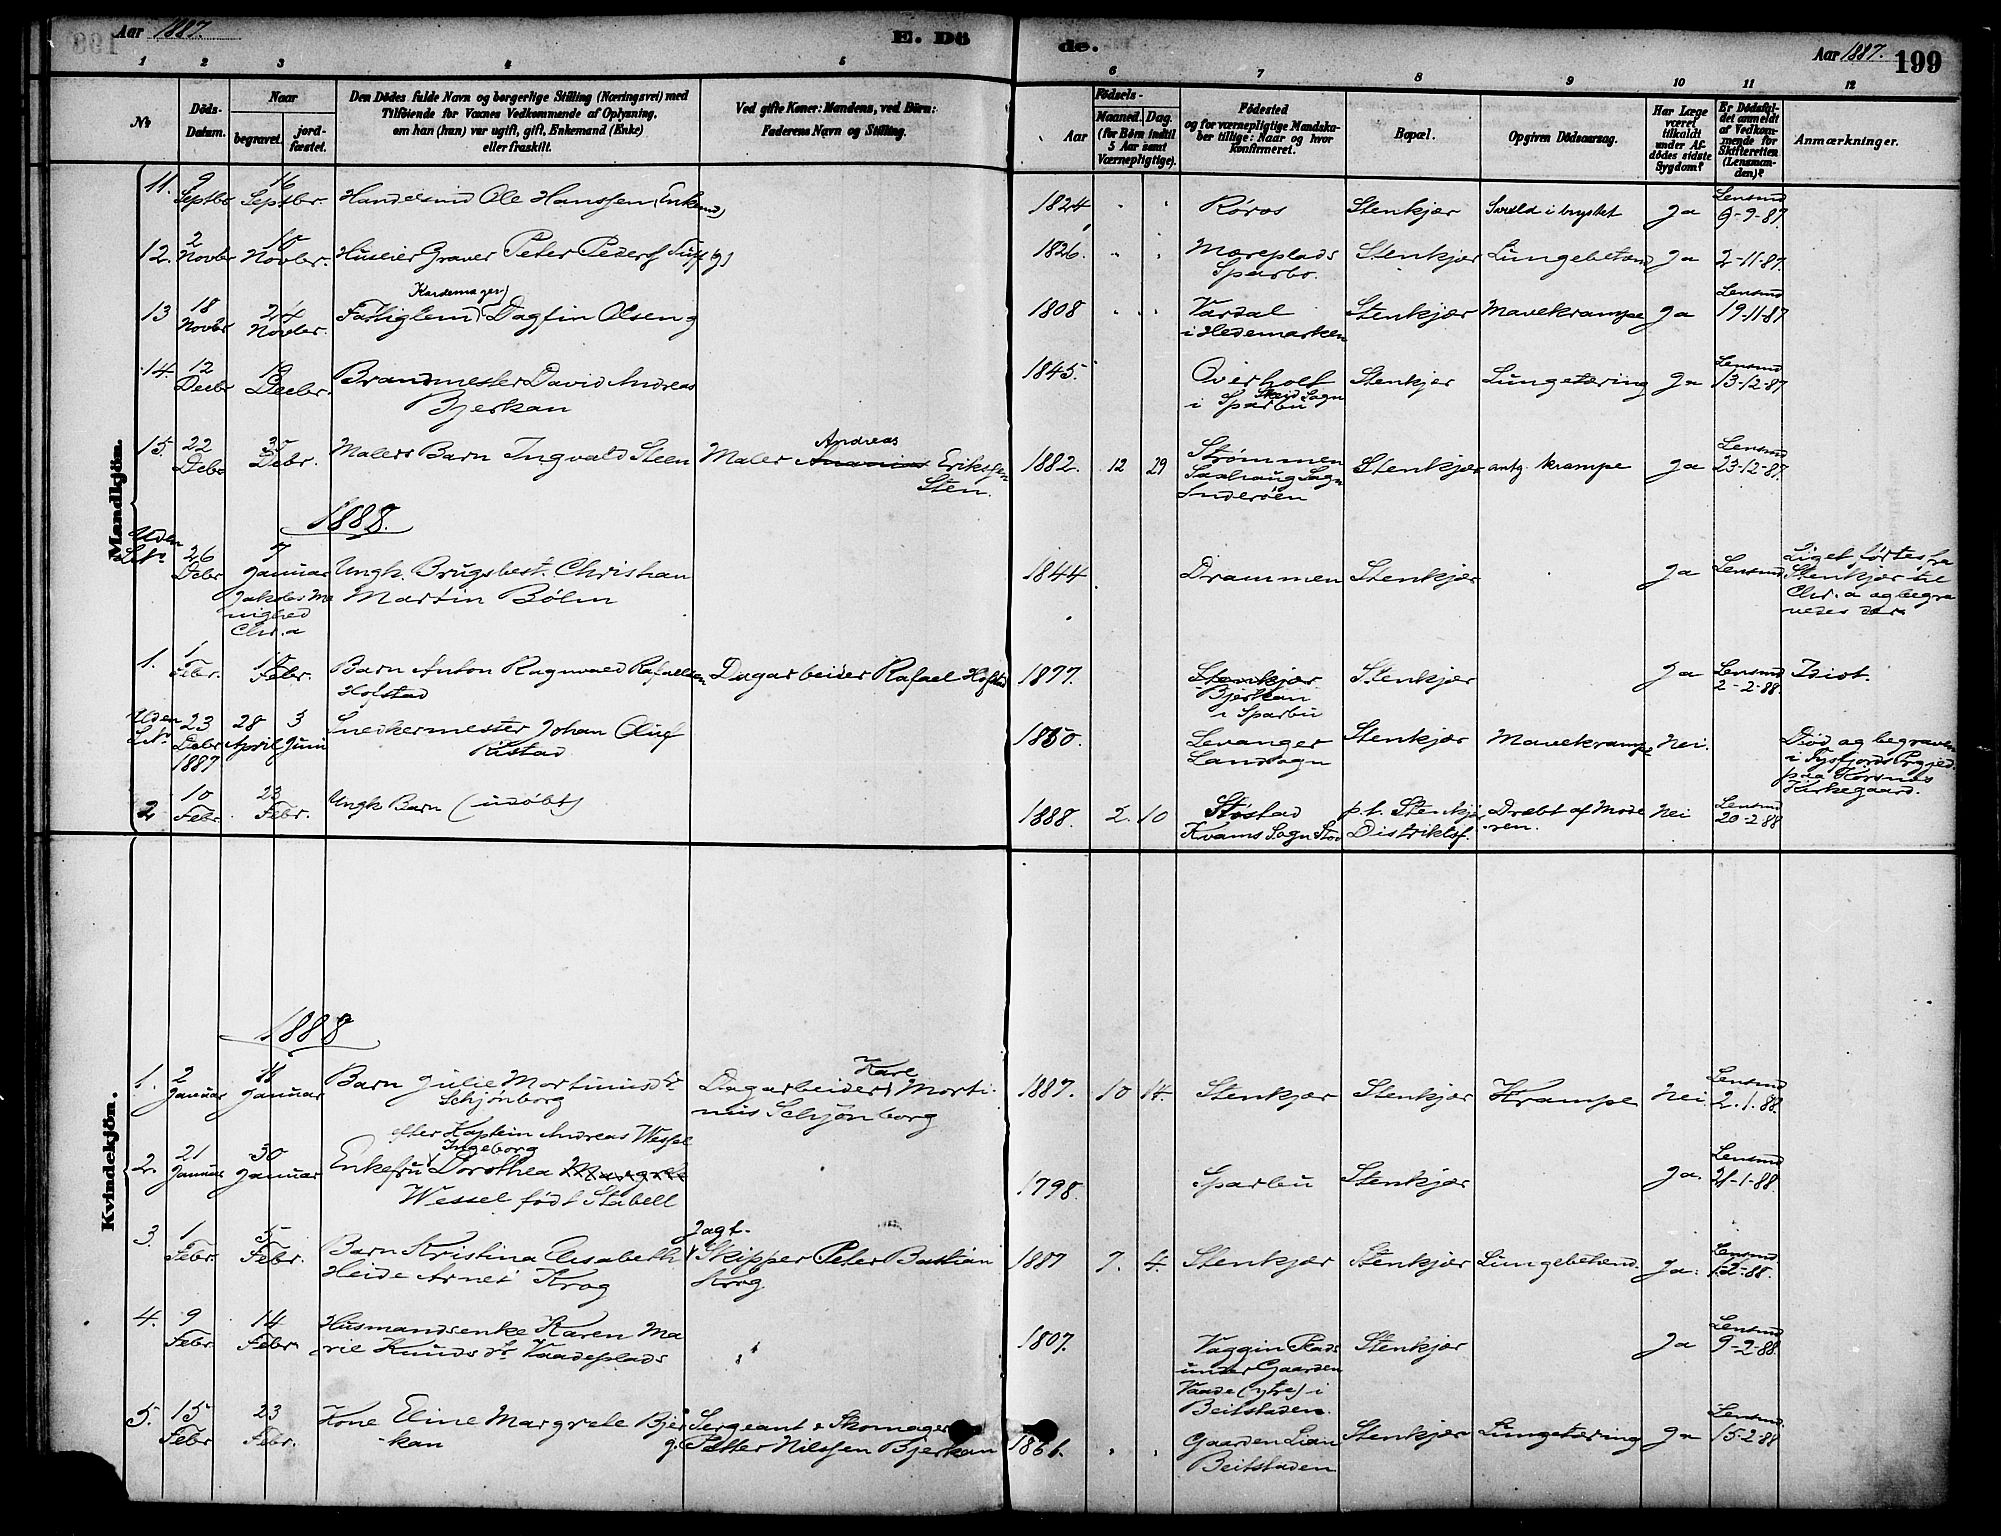 Aar 1887.
E. Dö
de.
Aar 1887.
199
1 2 3 4 5 6 7 8 9 10 11 12
No
Döds-Datum.
Naar
begravet.
jord-fæstet.
Den Dödes fulde Navn og borgerlige Stilling (Næringsvei) med
Tilföiende for Voxnes Vedkommende af Oplysning,
om han (hun) var ugift, gift, Enkemand (Enke)
eller fraskilt.
Ved gifte Koner: Mandens, ved Börn:
Faderens Navn og Stilling.
Födsels-
Aar
Maaned. Dag.
(for Börn indtil
5 Aar samt
Værnepligtige).
Födested
og for værnepligtige Mandska-
ber tillige: Naar og hvor
konfirmeret.
Bopæl.
Opgiven Dödsaarsag.
Har Læge
været
tilkaldt
under Af-
dödes sidste
Sygdom?
Er Dödsfal-
det anmeldt
af Vedkom-
mende for
Skifteretten
(Lensman-
den)?
Anmærkninger.
Mandkjön.
11. 9 Septbr 16 Septbr. Handelsmd Ole Hanssen, Enkemd 1824 Røros Stenkjær i brystet Ja Lensmd 9-9-87.
12. 2 Novbr 10 Novbr. Huseier Graver Peter Peders (g) 1826. Mæreplads Sparbu. Stenkjær Lungebetænd Ja 2-11-87.
13 18 Novbr 24 Novbr. Fattiglem (Kardemager) Dagfin Olsen g 1808 Vardal i Hedemarken Stenkjær Mavekrampe Ja Lensmd 19-11-87
14. 12 Decbr 19 Decbr. Brandmester David Andreas
Bjerkan 1845. Overholt Skeid Sogn i Sparbu Stenkjer Lungetæring Ja Lensmd 13-12-87
15. 22 Debr Debr. Malers Barn Ingvald Steen Maler Andreas Eriksen
Sten. 1882. 12 29 Strømmen
Saxhaug Sogn
Inderøen Stenkjær antg. krampe Ja Lensmd 23-12-87.
1888.
Uden No 26 Debr 7 Januar Jakobs Me
nighed
Chr.a Ungk. Brugsbest. Christian
Martin Bølm 1844 Drammen Stenkjær Ja Lensmd Liget førtes fra
Stenkjær til
Chr.a og begra
vedes der.
1. 1 Febr. Febr. Barn Anton Ragnvald Rafaelsen
Hofstad Dagarbeider Rafael Hofstad 1877. Stenkjær
Bjerkan
i Sparbu Stenkjær Ja Lensmd 2-2-88. Idiot.
Uden No 23 Debr 1887. 28 April 3 Juni Snedkermester Johan Oluf
Ristad 1850. Levanger
Landsogn Stenkjær Mavekrampe Nei. Død og begraven
i Tysfjords Prgjed.
paa Korsnes
Kirkegaard.
2 10 Febr. 23 Febr. Ungk Barn (udøbt) 1888. 2. 10 Støstad
Kvams Sogn Stod p.t. Stenkjær
Distriktsf. Dræbt af Mode
ren. Nei Lensmd 20-2-88
Kvindekjön.
1888
1. 2 Januar 11 Januar Barn Julie Martinusdr
Schjönborg Dagarbeider Karl Morti-
nus Schjönborg 1887. 10 14. Stenkjær Stenkjær Krampe Nei Lensmd 2.-1.88.
2. 21 Januar 30 Januar efter Kaptein Andreas Wessel
Enkefru Ingeborg Dorothea Margrete
Wessel født Stabell 1798. Sparbu Stenkjær Ja. Lensmd 21-1-88.
3. 1 Febr. 5 Febr. Barn Kristina Elisabeth
Heide Arnet Krog Jagt-
Skipper Peter Bastian
Krog 1887 7. 4. Stenkjær Stenkjær Lungebetænd. Ja. Lensmd 1-2-88.
4. 9 Febr. 14 Febr. Husmandsenke Karen Ma
rie Knudsdr. Vaadeplads 1807. Vaggin Plads
under Gaarden
Vaade (ytre) i
Beitstaden. Stenkjær Ja Lensmd 9-2-88.
5. 15 Febr 23 Febr. Kone Eline Margrete Bjer
-kan g. Sergeant & Skomager
Petter Nilssen Bjerkan 1861. Gaarden Lian
Beitstaden Stenkjær Lungetæring Ja Lensmd 15-2-88